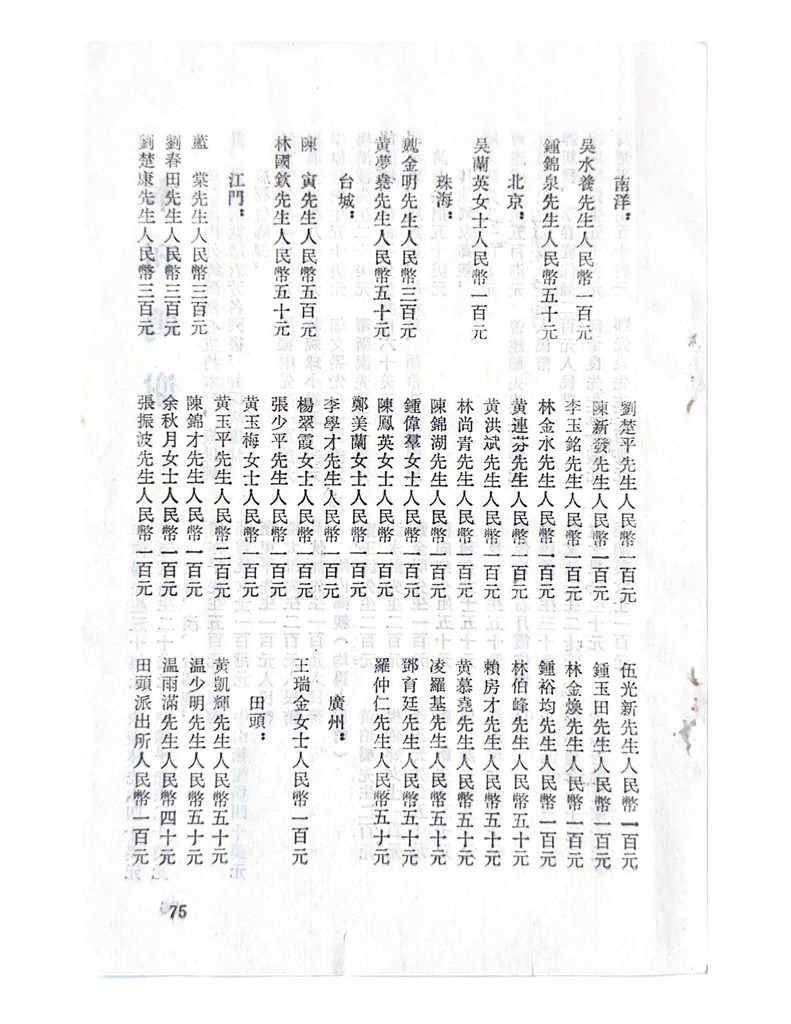 南洋：
吴水養先生人民幣一百元
鍾錦泉先生人民幣五十元
北京：
吴蘭英女士人民幣一百元
珠海：
魏金明先生人民幣三百元
黄夢堯先生人民幣五十元
台城：
陳　寅先生人民幣五百元
林國欽先生人民幣五十元
江門：
藍　棠先生人民幣三百元
劉春田先生人民幣三百元
劉楚康先生人民幣三百元
劉楚平先生人民幣一百元
陳新發先生人民幣一百元
李玉銘先生人民幣一百元
林金水先生人民幣一百元
黄連芬先生人民幣一百元
黄洪斌先生人民幣一百元
林尚青先生人民幣一百元
陳錦湖先生人民幣一百元
鍾偉羣女士人民幣一百元
陳鳳英女士人民幣一百元
鄭美蘭女士人民幣一百元
李學才先生人民幣一百元
楊翠霞女士人民幣一百元
張少平先生人民幣一百元
黄玉梅女士人民幣一百元
黄玉平先生人民幣二百元
陳錦才先生人民幣一百元
余秋月女士人民幣一百元
張振波先生人民幣一百元
伍光新先生人民幣一百元
鍾玉田先生人民幣一百元
林金煥先生人民幣一百元
鍾裕均先生人民幣一百元
林伯峰先生人民幣五十元
賴房才先生人民幣五十元
黄慕堯先生人民幣五十元
凌羅基先生人民幣五十元
鄧育廷先生人民幣五十元
羅仲仁先生人民幣五十元
廣州：
王瑞金女士人民幣一百元
田頭：
黄凱輝先生人民幣五十元
温少明先生人民幣五十元
温雨滿先生人民幣四十元
田頭派出所人民幣一百元
75